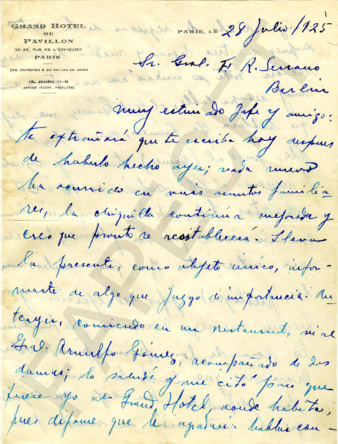 GRAND HOTEL
DU
PAVILLON
36-38, RUE DE L'ECHIQUIER
PARIS
PARIS, LE 28 Julio/925
Sr. Gral. F. R. Serrano
Berlin
Muy estimado Jefe y amigo:
te extrañará que te escriba hoy despues
de haberlo hecho ayer; nada nuevo
ha ocurrido en mis asuntos familia
res, la chiquilla continua mejorada y
creo que pronto se restablecerá. Lleva
la presente, como objeto unico, infor-
marte de algo que juzgo de importancia: An-
teayer, comiendo en un restaurant, vi al
Gral. Arnulfo Gómez, acompañado de dos
damas; lo saludé y me citó para que
fuera yo al Grand Hotel, donde habita,
pues dijome que le agradaria hablar con-